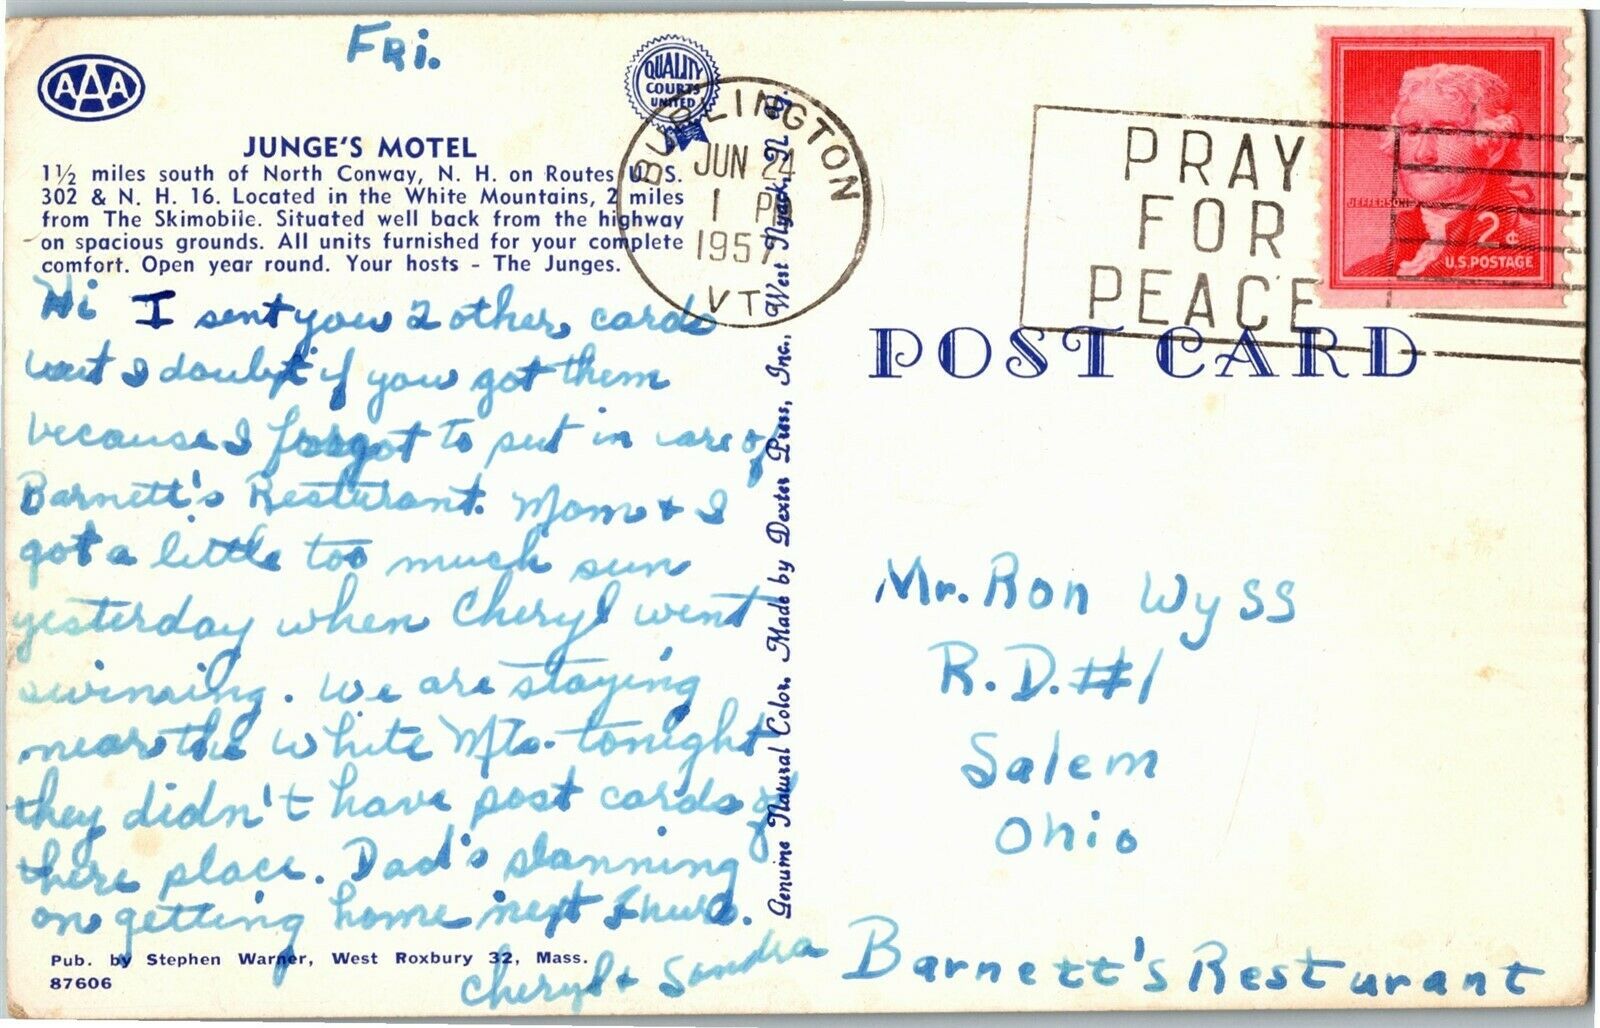 Fri.
AAA
QUALITY
COURTS
UNITED
JUNGE'S MOTEL
1½ miles south of North Conway, N. H. on Routes U. S.
302 & N. H. 16. Located in the White Mountains, 2 miles
from The Skimobile. Situated well back from the highway
on spacious grounds. All units furnished for your complete
comfort. Open year round. Your hosts - The Junges.
Hi I sent you 2 other cards
but I doubt if you got them
because I forgot to put in care of
Barnett's Resturant. Mom & I
got a little too much sun
yesterday when Cheryl went
swimming. We are staying
near the White Mts. tonight
they didn't have post cards of
there place. Dad's planning
on getting home next Thurs.
Cheryl & Sandra
Pub. by Stephen Warner, West Roxbury 32, Mass.
87606
Genuine Natural Color. Made by Dexter Press, Inc., West Nyack, N. Y.
BURLINGTON
JUN 24
1 PM
1957
VT
PRAY
FOR
PEACE
JEFFERSON
2¢
U.S. POSTAGE
POST CARD
Mr. Ron Wyss
R.D. #1
Salem
Ohio
Barnett's Resturant